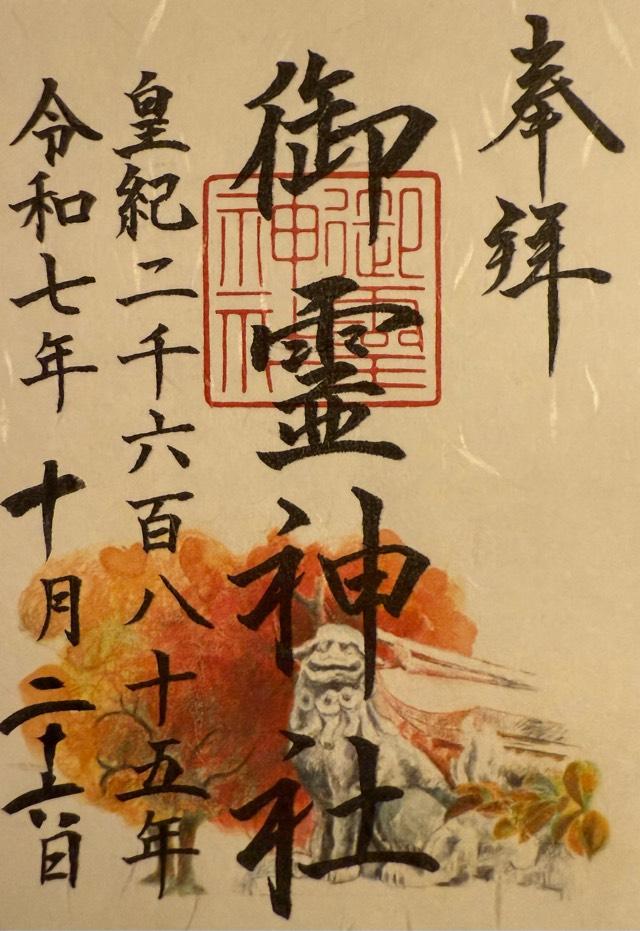 奉拝
御霊神社
御霊神社
皇紀二千六百八十五年
令和七年十月二十六日